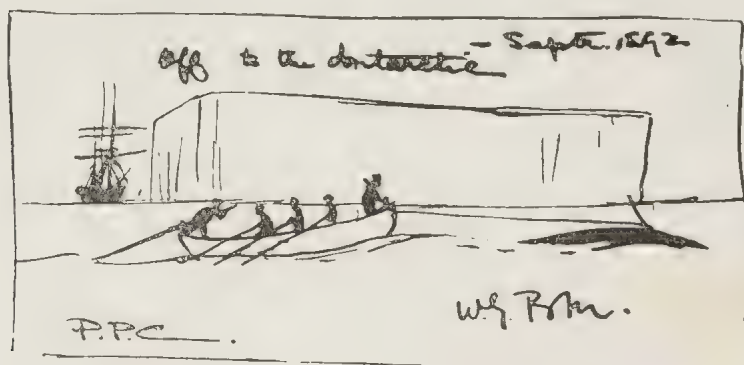 Off to the Antarctic – Septr. 1892
W.G.
P.P.C.